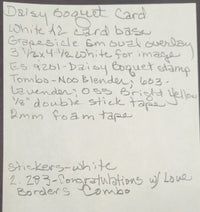 Daisy Boquet Card
White A2 card base
Grapesicle 6m oval overlay
3 1/2x4 1/2 White for image
ES 9201-Daisy Boquet stamp
Tombo-N00 blender; 603-
Lavender; 055 Bright Yellow
1/8" double stick tape
2mm foam tape
stickers-white
2. 283-Congratulations w/ Love
Borders Combo